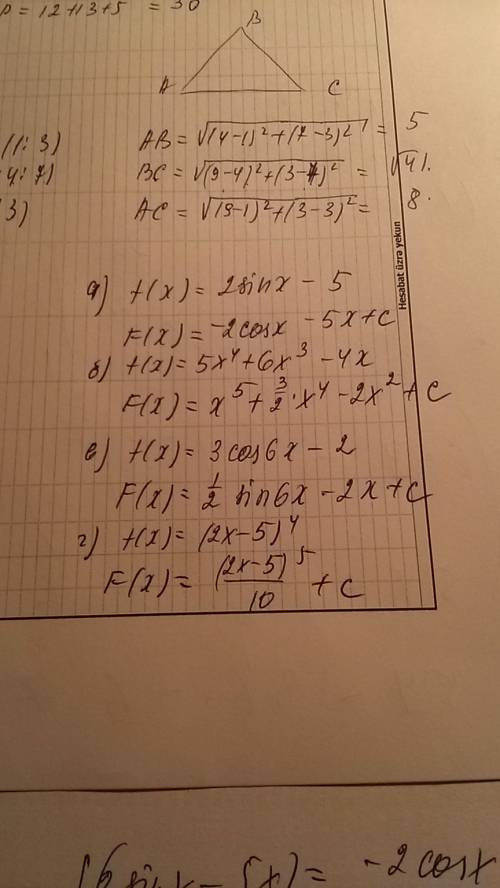 P = 12+13+5 = 30
B
A
C
(1; 3)
4; 7)
3)
AB = √(4-1)²+(7-3)² = 5
BC = √(9-4)²+(3-7)² = √41.
AC = √(9-1)²+(3-3)² = 8.
Hesabat üzrə yekun
а) f(x) = 2sinx - 5
F(x) = -2cosx - 5x + C
б) f(x) = 5x⁴ + 6x³ - 4x
F(x) = x⁵ + 3/2 · x⁴ - 2x² + C
в) f(x) = 3cos6x - 2
F(x) = 1/2 sin6x - 2x + C
г) f(x) = (2x-5)⁴
F(x) = (2x-5)⁵/10 + C
sinx - 5x) = -2cosx